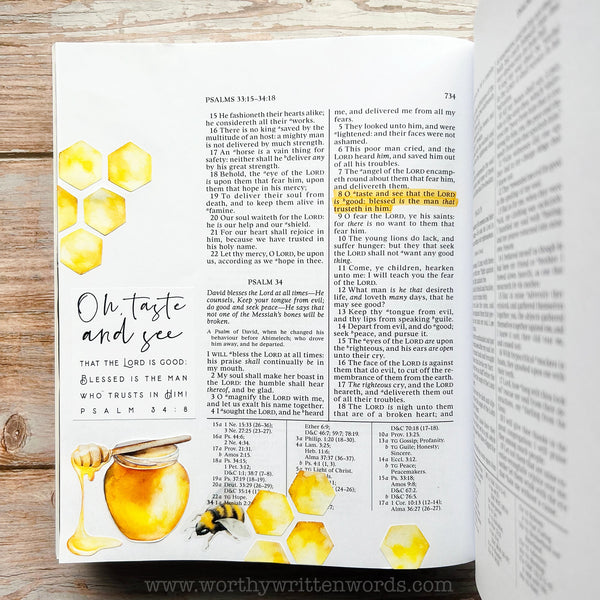 PSALMS 33:15–34:18
734
15 He fashioneth their hearts alike;
he considereth all their ᵃworks.
16 There is no king ᵃsaved by the
multitude of an host: a mighty man
is not delivered by much strength.
17 An ᵃhorse is a vain thing for
safety: neither shall he ᵇdeliver any
by his great strength.
18 Behold, the ᵃeye of the LORD is
upon them that fear him, upon
them that hope in his mercy;
19 To deliver their soul from
death, and to keep them alive in
ᵃfamine.
20 Our soul waiteth for the LORD:
he is our help and our ᵃshield.
21 For our heart shall rejoice in
him, because we have trusted in
his holy name.
22 Let thy mercy, O LORD, be upon
us, according as we ᵃhope in thee.
PSALM 34
David blesses the Lord at all times—He
counsels, Keep your tongue from evil;
do good and seek peace—He says that
not one of the Messiah's bones will be
broken.
A Psalm of David, when he changed his
behaviour before Abimelech; who drove
him away, and he departed.
I WILL ᵃbless the LORD at all times:
his praise shall continually be in
my mouth.
2 My soul shall make her boast in
the LORD: the humble shall hear
thereof, and be glad.
3 O ᵃmagnify the LORD with me,
and let us exalt his name together.
4 I ᵃsought the LORD, and he ᵇheard
me, and delivered me from all my
fears.
5 They looked unto him, and were
ᵃlightened: and their faces were not
ashamed.
6 This poor man cried, and the
LORD heard him, and saved him out
of all his troubles.
7 The ᵃangel of the LORD encamp-
eth round about them that fear him,
and delivereth them.
8 O ᵃtaste and see that the LORD
is ᵇgood: blessed is the man that
trusteth in him.
9 O fear the LORD, ye his saints:
for there is no want to them that
fear him.
10 The young lions do lack, and
suffer hunger: but they that seek
the LORD shall not ᵃwant any good
thing.
11 Come, ye children, hearken
unto me: I will teach you the fear
of the LORD.
12 What man is he that desireth
life, and loveth many days, that he
may see good?
13 Keep thy ᵃtongue from evil,
and thy lips from speaking ᵇguile.
14 Depart from evil, and do ᵃgood;
seek ᵇpeace, and pursue it.
15 The ᵃeyes of the LORD are upon
the ᵇrighteous, and his ears are open
unto their cry.
16 The face of the LORD is against
them that do evil, to cut off the re-
membrance of them from the earth.
17 The righteous cry, and the LORD
heareth, and ᵃdelivereth them out
of all their troubles.
18 The LORD is nigh unto them
that are of a broken heart; and
Oh, taste
and see
THAT THE LORD IS GOOD:
BLESSED IS THE MAN
WHO TRUSTS IN HIM!
PSALM 34:8
15a 1 Ne. 15:33 (26–36);
3 Ne. 27:25 (23–27).
16a Ps. 44:6;
2 Ne. 4:34.
17a Prov. 21:31.
b Amos 2:15.
18a Ps. 34:15;
1 Pet. 3:12;
D&C 1:1; 38:7 (7–8).
19a Ps. 37:19 (18–19).
20a Deut. 33:29 (26–29);
D&C 35:14
22a TG Hope.
34 1
Ether 6:9;
D&C 46:7; 59:7; 78:19.
3a Philip. 1:20 (18–30).
4a Lam. 3:25;
Heb. 11:6;
Alma 37:37 (36–37).
b Ps. 4:1 (1, 3).
5a TG Light of Christ.
(24–26);
D&C 70:18 (17–18).
10a Prov. 13:25.
13a TG Gossip; Profanity.
b TG Guile; Honesty;
Sincere.
14a Eccl. 3:12.
b TG Peace;
Peacemakers.
15a Ps. 33:18;
Amos 9:8;
D&C 67:2.
b D&C 76:5.
17a 1 Cor. 10:13 (12–14);
Alma 36:27 (26–27).
www.worthywrittenwords.com